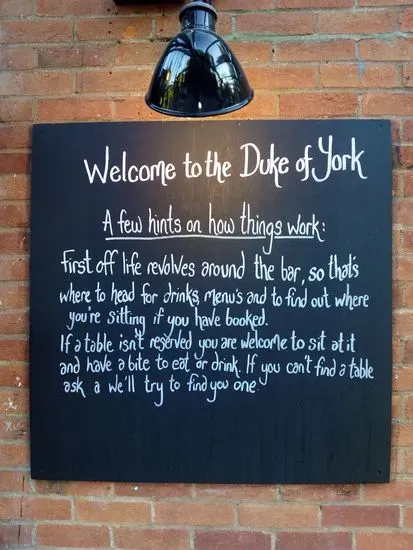 Welcome to the Duke of York
A few hints on how things work:
First off life revolves around the bar, so that's
where to head for drinks, menu's and to find out where
you're sitting if you have booked.
If a table isn't reserved you are welcome to sit at it
and have a bite to eat or drink. If you can't find a table
ask a we'll try to find you one.